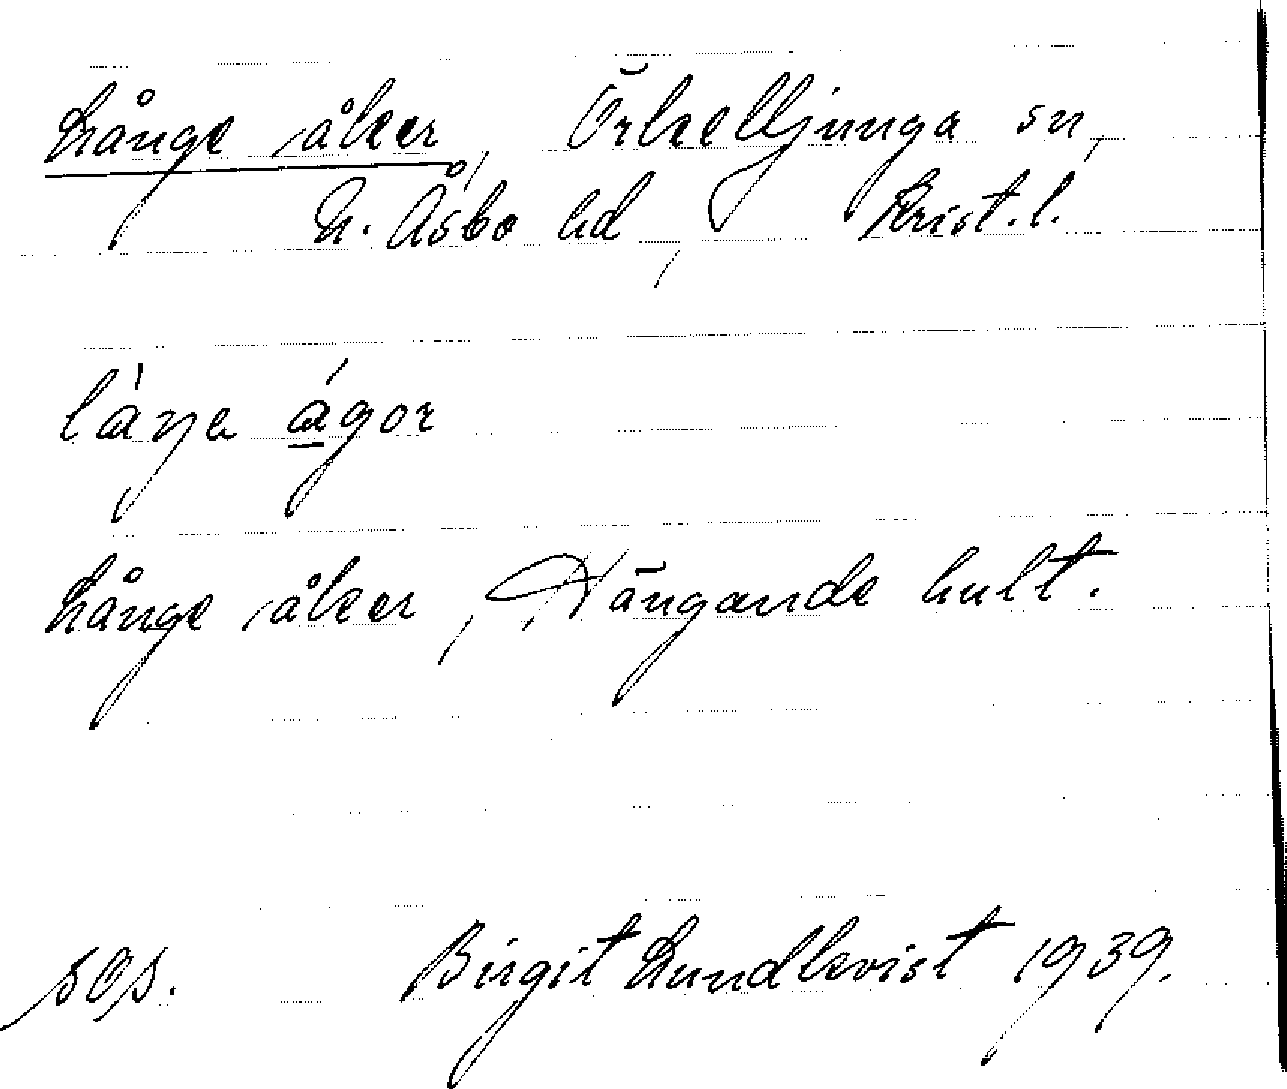 Långe åker, Örkelljunga sn,
N. Åsbo hd, Krist. l.
Långe åker, Tångande hult.
sep. Birgit Lundkvist 1939.